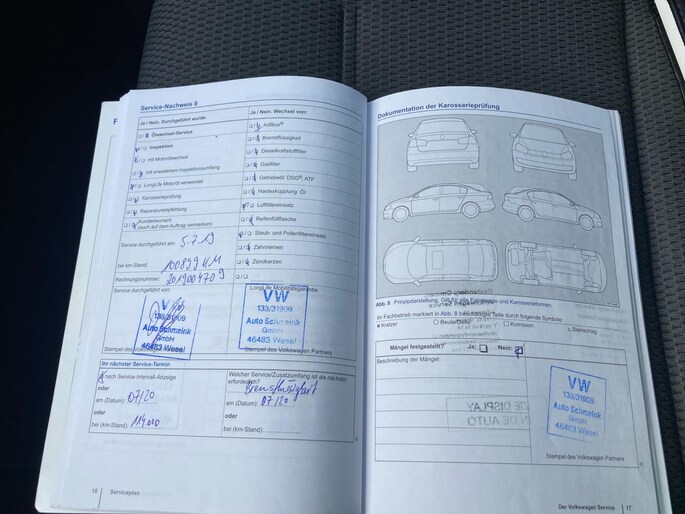 Service-Nachweis 6
Ja / Nein, Durchgeführt wurde:
Ölwechsel-Service
Inspektion
mit Motorölwechsel
mit erweitertem Inspektionsumfang
LongLife Motoröl verwendet
Karosserieprüfung
Reparaturempfehlung
Kundenwunsch
(auch auf dem Auftrag vermerken)
Service durchgeführt am: 5.7.19
bei km-Stand: 100899 KM
Rechnungsnummer: 2019004709
Service durchgeführt von:
VW
133/31909
Auto Schmeink
GmbH
46483 Wesel
Stempel des Volkswagen
Ja / Nein, Wechsel von:
AdBlue®
Bremsflüssigkeit
Dieselkraftstofffilter
Gasfilter
Getriebeöl: DSG®, ATF
Haldexkupplung: Öl
Luftfiltereinsatz
Reifenfüllflasche
Staub- und Pollenfiltereinsatz
Zahnriemen
Zündkerzen
LongLife Mobilitätsgarantie
VW
133/31909
Auto Schmeink
GmbH
46483 Wesel
Stempel des Volkswagen Partners
Ihr nächster Service-Termin
nach Service-Intervall-Anzeige
oder
am (Datum): 07/20
oder
bei (km-Stand): 114.000
Welcher Service/Zusatzumfang ist als nächster
erforderlich?
Bremsflüssigkeit
am (Datum): 07/20
oder
bei (km-Stand):
16 Serviceplan
Dokumentation der Karosserieprüfung
Abb. 8 Prinzipdarstellung: Gilt für alle Fahrzeuge und Karosserieformen.
Ihr Fachbetrieb markiert in Abb. 8 beschädigte Teile durch folgende Symbole
x Kratzer
O Beule/Delle
Korrosion
Steinschlag
Mängel festgestellt? Ja: Nein:
Beschreibung der Mängel:
VW
133/31909
Auto Schmeink
GmbH
46483 Wesel
Stempel des Volkswagen Partners
Der Volkswagen Service 17